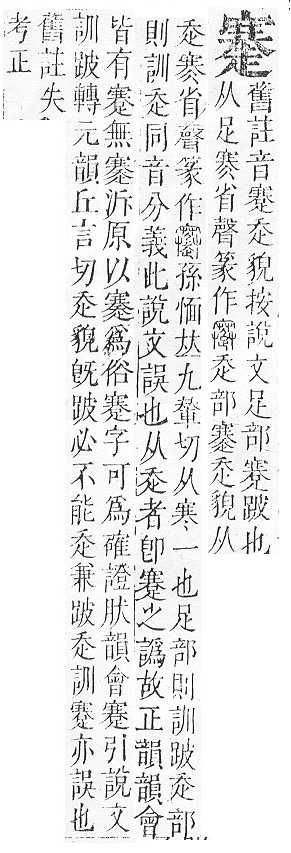 舊註音蹇走貌按說文足部蹇跛也
从足寒省聲篆作走部走貌从
走寒省聲篆作孫愐𡘋九輦切从寒一也足部則訓跛走部
則訓走同音分義此說文誤也从走者卽蹇之譌故正韻韻會
皆有蹇無泝原以爲俗蹇字可爲確證肰韻會蹇引說文
訓跛轉元韻丘言切走貌旣跛必不能走兼跛走訓蹇亦誤也
舊註失
考正